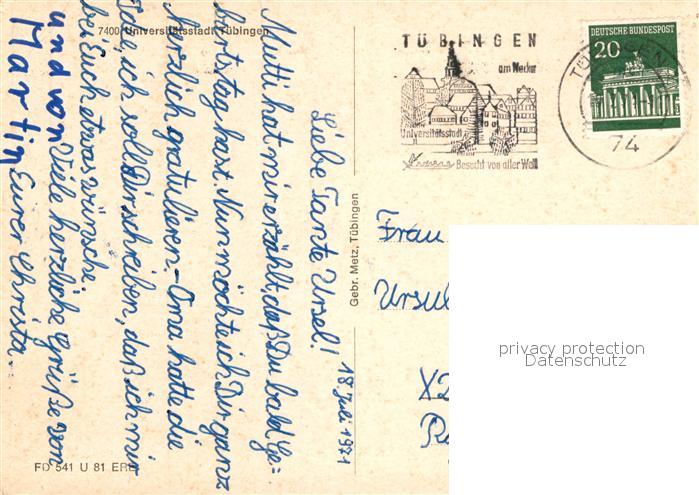 7400 Universitätsstadt Tübingen
18. Juli 1971
Liebe Tante Ursel!
Mutti hat mir erzählt, daß Du bald Ge=
burtstag hast. Nun möchte ich Dir ganz
herzlich gratulieren. - Oma hatte die
Idee, ich soll Dir schreiben, daß ich mir
bei Euch etwas wünsche.
Viele herzliche Grüße von
Eurer Christa.
und von
Martin
FD 541 U 81 ERL
Gebr. Metz, Tübingen
TÜBINGEN
am Neckar
Universitätsstadt
Besucht von aller Welt
DEUTSCHE BUNDESPOST
20
TÜBINGEN
74
Frau
Ursul
X2
privacy protection
Datenschutz